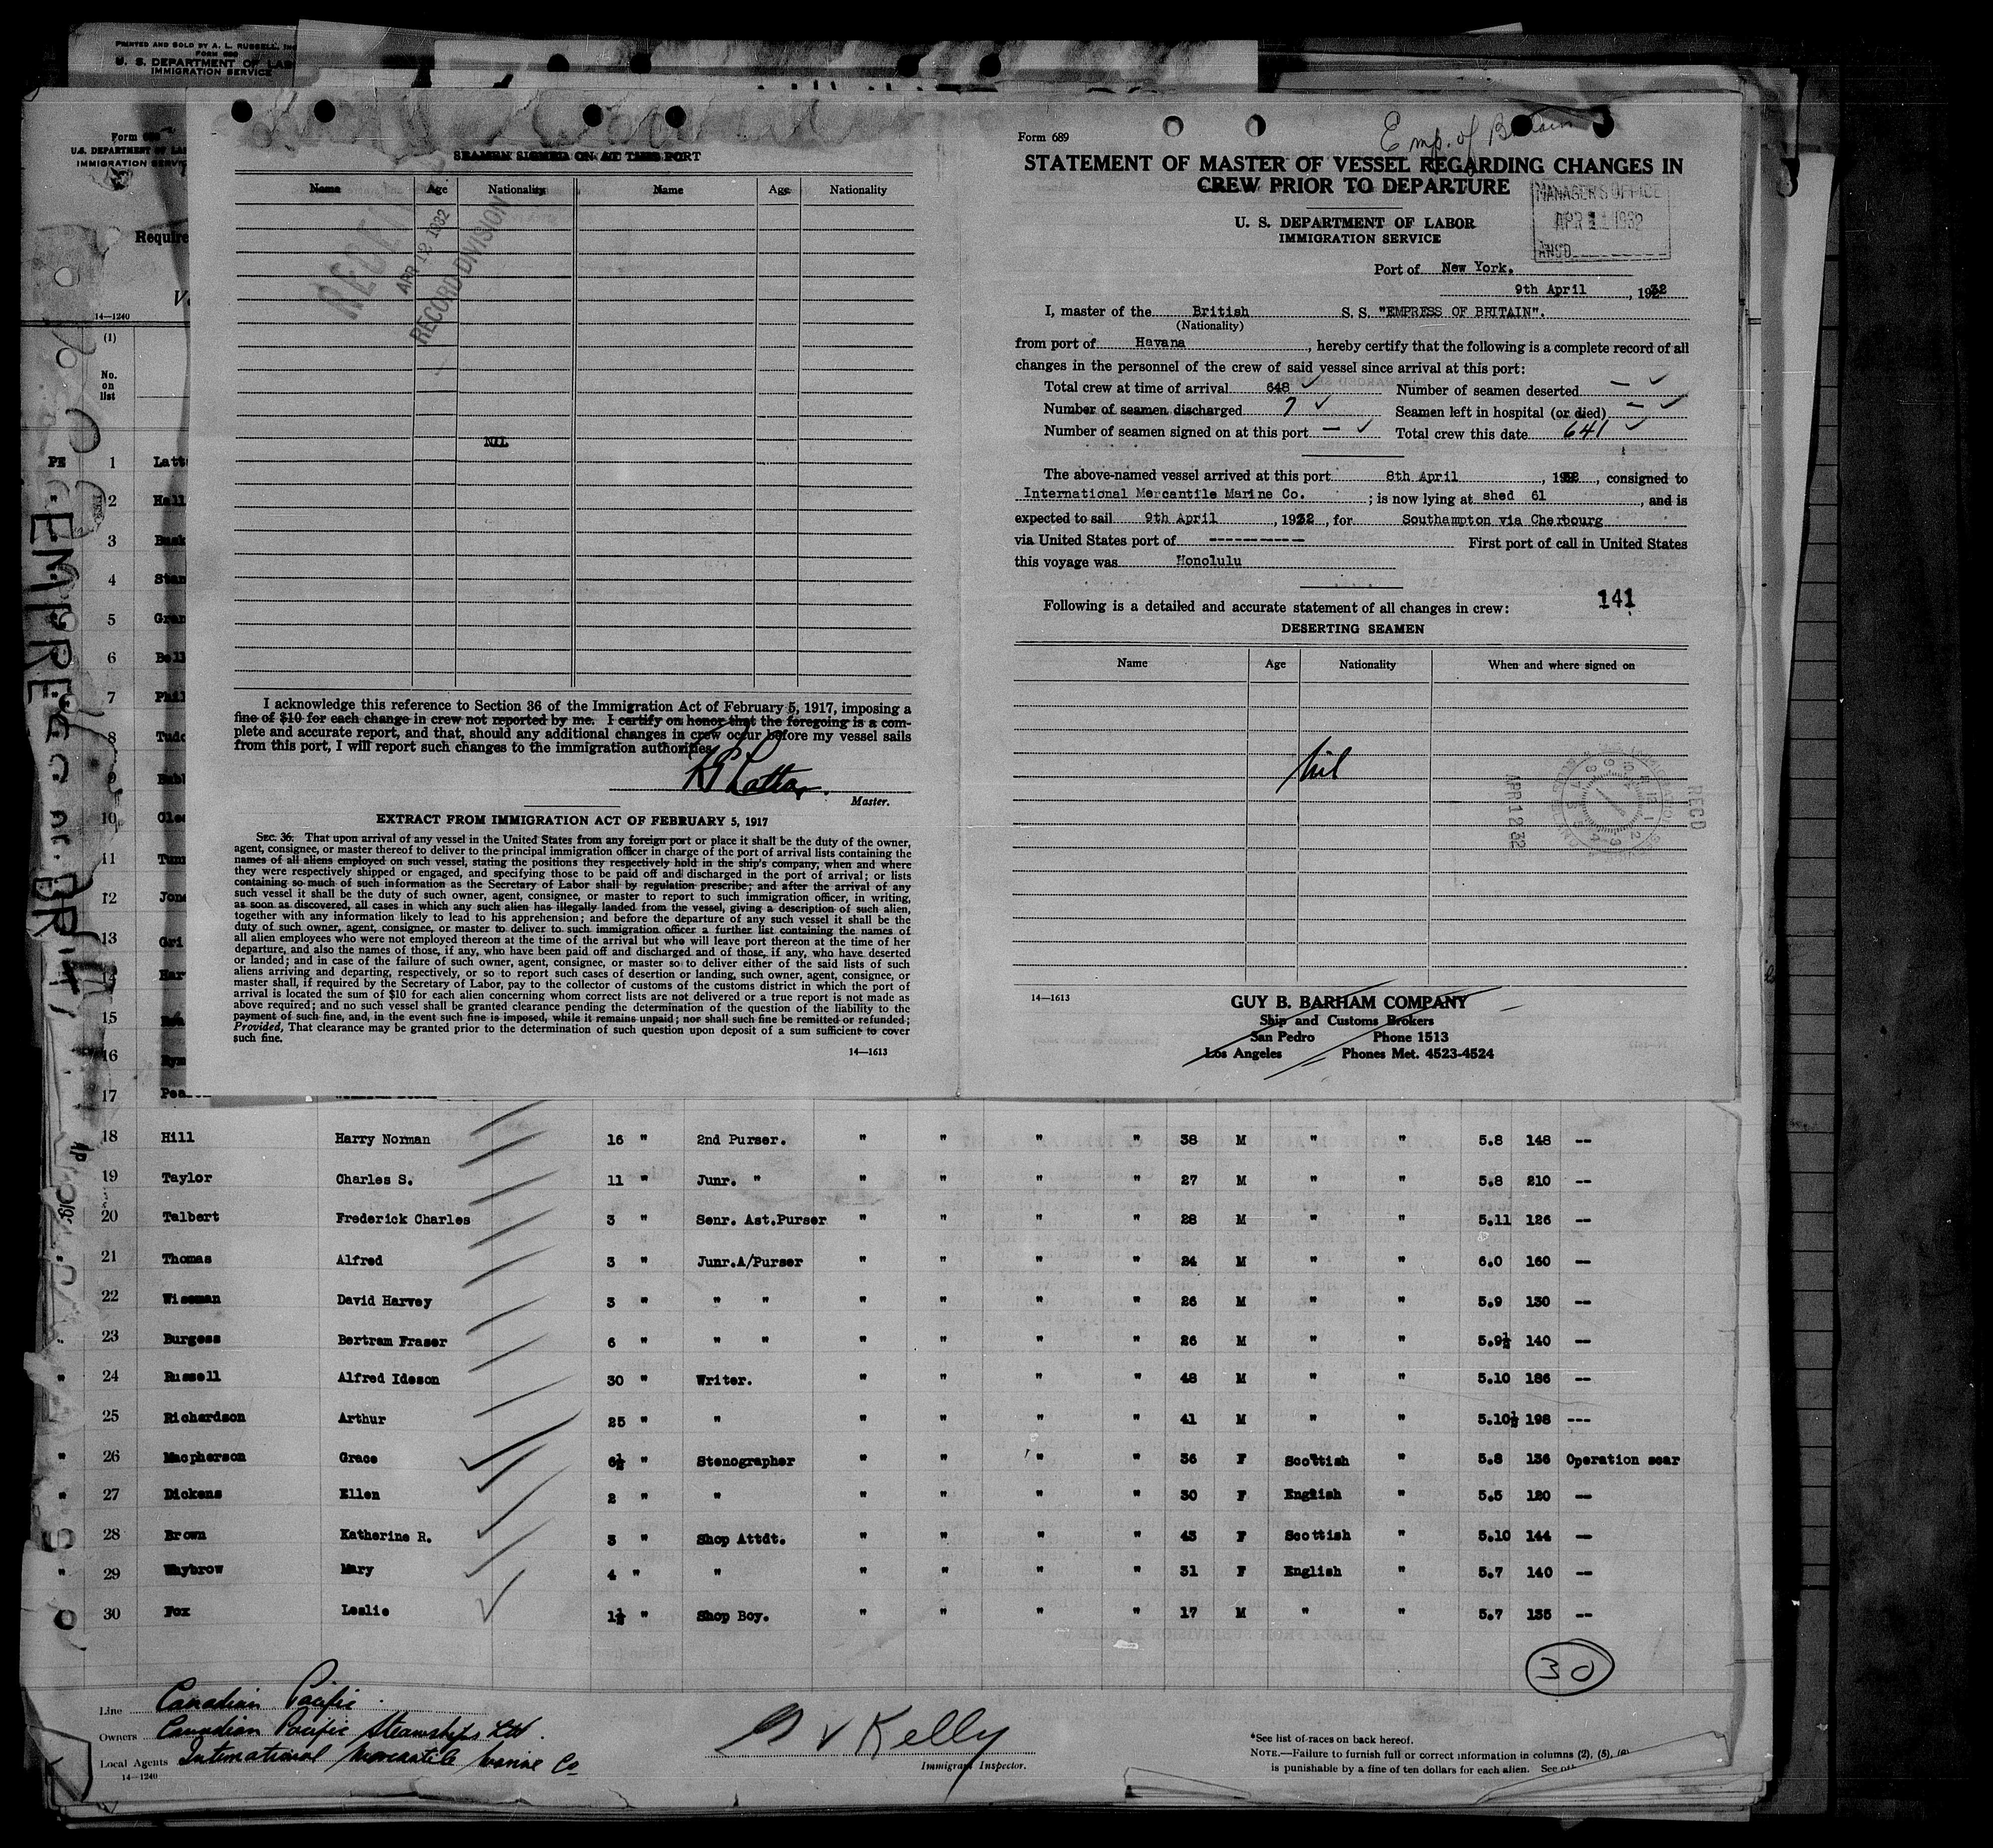 PRINTED AND SOLD BY A. L. RUSSELL, INC
FORM 689
U. S. DEPARTMENT OF LAB
IMMIGRATION SERVICE
Form
U.S. DEPARTMENT OF LA
IMMIGRATION SERVIC
Require
14—1240
(1)
No.
on
list
PE 1 Latt
" 2 Hall
3 Busk
4 Stan
5 Gran
6 Bell
7 Phil
8 Tudo
9 Bubl
10 Cle
11 Tun
12 Jone
13 Gri
14 Har
15
16 Rym
17 Pea
SEAMEN SIGNED ON AT THIS PORT
Name Age Nationality Name Age Nationality
APR 12 1932
RECORD DIVISION
NIL
I acknowledge this reference to Section 36 of the Immigration Act of February 5, 1917, imposing a
fine of $10 for each change in crew not reported by me. I certify on honor that the foregoing is a com-
plete and accurate report, and that, should any additional changes in crew occur before my vessel sails
from this port, I will report such changes to the immigration authorities.
RG Latta
Master.
EXTRACT FROM IMMIGRATION ACT OF FEBRUARY 5, 1917
SEC. 36. That upon arrival of any vessel in the United States from any foreign port or place it shall be the duty of the owner,
agent, consignee, or master thereof to deliver to the principal immigration officer in charge of the port of arrival lists containing the
names of all aliens employed on such vessel, stating the positions they respectively hold in the ship's company, when and where
they were respectively shipped or engaged, and specifying those to be paid off and discharged in the port of arrival; or lists
containing so much of such information as the Secretary of Labor shall by regulation prescribe; and after the arrival of any
such vessel it shall be the duty of such owner, agent, consignee, or master to report to such immigration officer, in writing,
as soon as discovered, all cases in which any such alien has illegally landed from the vessel, giving a description of such alien,
together with any information likely to lead to his apprehension; and before the departure of any such vessel it shall be the
duty of such owner, agent, consignee, or master to deliver to such immigration officer a further list containing the names of
all alien employees who were not employed thereon at the time of the arrival but who will leave port thereon at the time of her
departure, and also the names of those, if any, who have been paid off and discharged and of those, if any, who have deserted
or landed; and in case of the failure of such owner, agent, consignee, or master so to deliver either of the said lists of such
aliens arriving and departing, respectively, or so to report such cases of desertion or landing, such owner, agent, consignee, or
master shall, if required by the Secretary of Labor, pay to the collector of customs of the customs district in which the port of
arrival is located the sum of $10 for each alien concerning whom correct lists are not delivered or a true report is not made as
above required; and no such vessel shall be granted clearance pending the determination of the question of the liability to the
payment of such fine, and, in the event such fine is imposed, while it remains unpaid; nor shall such fine be remitted or refunded;
Provided, That clearance may be granted prior to the determination of such question upon deposit of a sum sufficient to cover
such fine.
14—1613
Form 689
Emp. of Britain
STATEMENT OF MASTER OF VESSEL REGARDING CHANGES IN
CREW PRIOR TO DEPARTURE
MANAGER'S OFFICE
APR 11 1932
ANSD
U. S. DEPARTMENT OF LABOR
IMMIGRATION SERVICE
Port of New York.
9th April, 1932
I, master of the British S. S. "EMPRESS OF BRITAIN".
(Nationality)
from port of Havana, hereby certify that the following is a complete record of all
changes in the personnel of the crew of said vessel since arrival at this port:
Total crew at time of arrival 648 ✓ Number of seamen deserted — ✓
Number of seamen discharged 7 ✓ Seamen left in hospital (or died) — ✓
Number of seamen signed on at this port — ✓ Total crew this date 641 ✓
The above-named vessel arrived at this port 8th April, 1932, consigned to
International Mercantile Marine Co. ; is now lying at shed 61, and is
expected to sail 9th April, 1932, for Southampton via Cherbourg
via United States port of ---------- First port of call in United States
this voyage was Honolulu
Following is a detailed and accurate statement of all changes in crew: 141
DESERTING SEAMEN
Name Age Nationality When and where signed on
Nil
REC'D
APR 12 32
14—1613
GUY B. BARHAM COMPANY
Ship and Customs Brokers
San Pedro Phone 1513
Los Angeles Phones Met. 4523-4524
18 Hill Harry Norman 16 " 2nd Purser. " " " " 38 M " " 5.8 148 --
19 Taylor Charles S. 11 " Junr. " " " " " 27 M " " 5.8 210 --
20 Talbert Frederick Charles 3 " Senr. Ast.Purser " " " " 28 M " " 5.11 126 --
21 Thomas Alfred 3 " Junr.A/Purser " " " " 24 M " " 6.0 160 --
22 Wiseman David Harvey 3 " " " " " " " 26 M " " 5.9 130 --
23 Burgess Bertram Fraser 6 " " " " " " " 26 M " " 5.9½ 140 --
" 24 Russell Alfred Ideson 30 " Writer. " " " " 48 M " " 5.10 186 --
25 Richardson Arthur 25 " " " " " " 41 M " " 5.10½ 198 ---
" 26 Macpherson Grace 6½ " Stenographer " " " " 36 F Scottish " 5.8 136 Operation scar
" 27 Dickens Ellen 2 " " " " " " 30 F English " 5.5 120 --
" 28 Brown Katherine R. 3 " Shop Attdt. " " " " 43 F Scottish " 5.10 144 --
" 29 Whybrow Mary 4 " " " " " " 31 F English " 5.7 140 --
30 Fox Leslie 1½ " Shop Boy. " " " " 17 M " " 5.7 135 --
30
Line Canadian Pacific.
Owners Canadian Pacific Steamships Ltd.
Local Agents International Mercantile Marine Co
14—1240
G V Kelly
Immigrant Inspector.
*See list of races on back hereof.
NOTE.—Failure to furnish full or correct information in columns (2), (5), (6)
is punishable by a fine of ten dollars for each alien. See